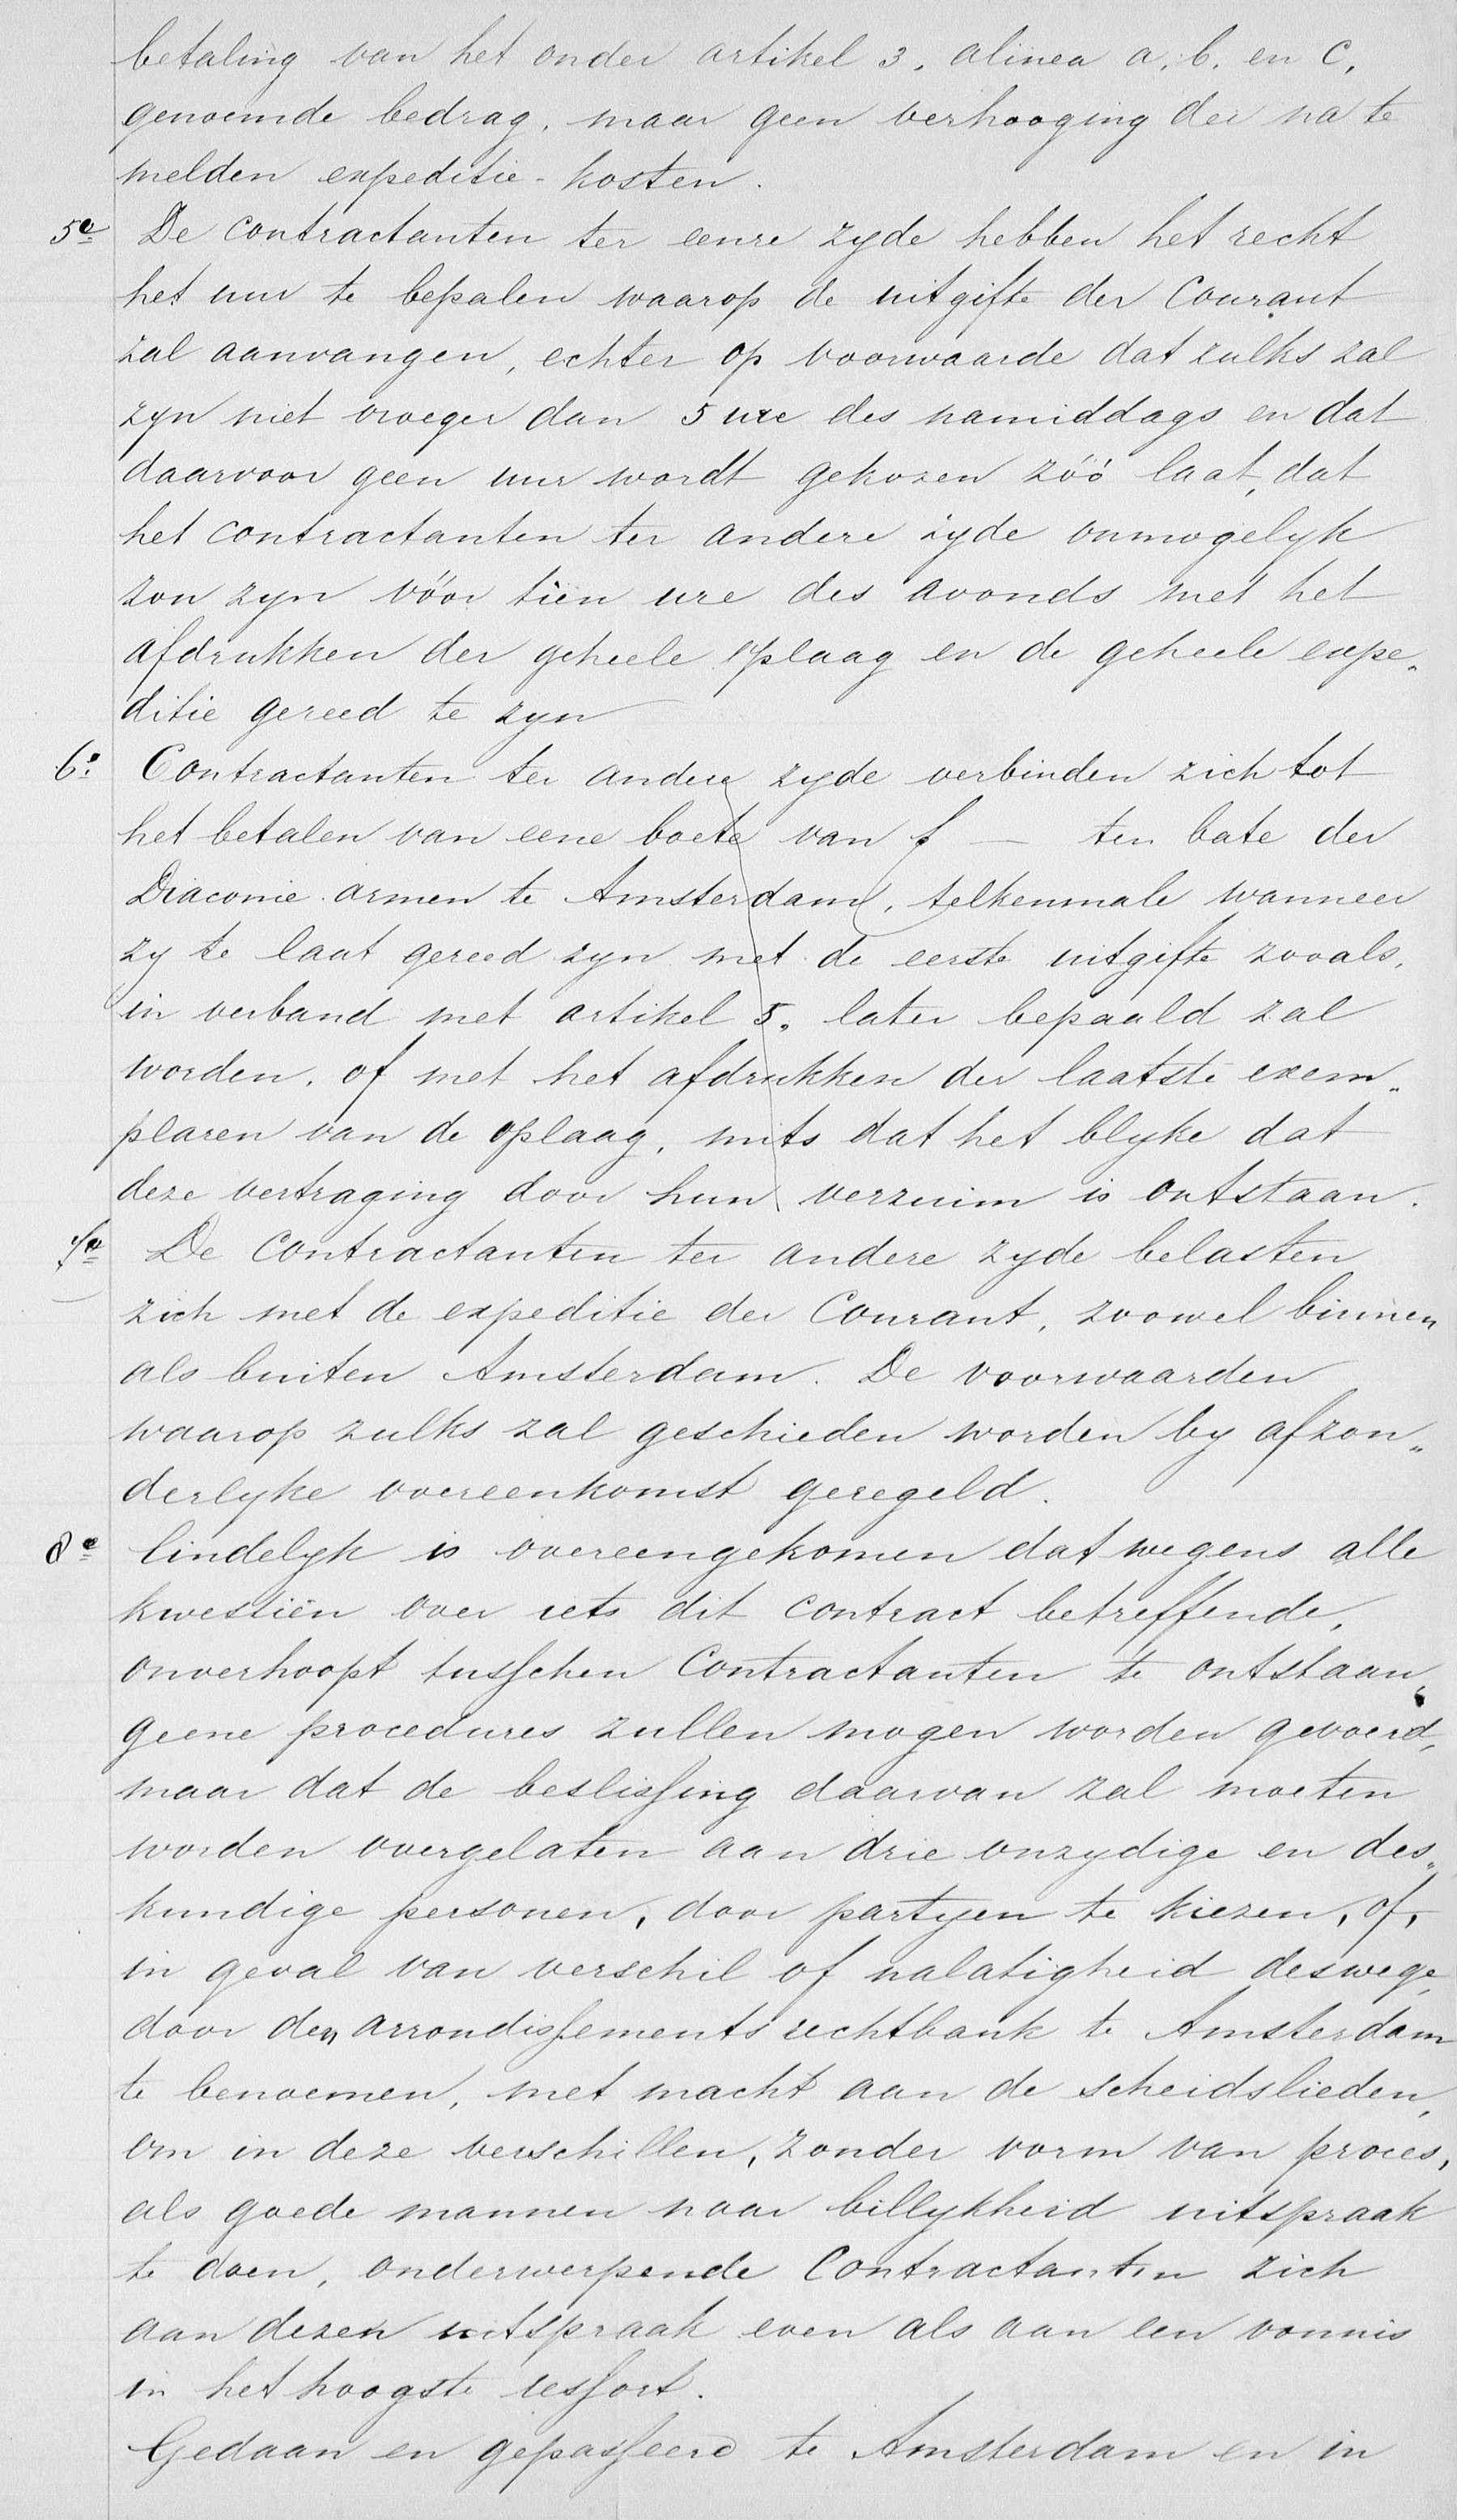 betaling van het onder artikel 3, alinea a, b, en c,
genoemde bedrag, maar geen verhooging der na te
melden expeditie-kosten.
5e De contractanten ter eenre zyde hebben het recht
het uur te bepalen waarop de uitgifte der Courant
zal aanvangen, echter op voorwaarde dat zulks zal
zyn niet vroeger dan 5 ure des namiddags en dat
daarvoor geen uur wordt gekozen zóó laat, dat
het contractanten ter andere zyde onmogelyk
zou zyn vóór tien ure des avonds met het
afdrukken der geheele oplaag en de geheele expe„
ditie gereed te zyn
6e Contractanten ter andere zyde verbinden zich tot
het betalen van eene boete van f — ten bate der
Diaconie armen te Amsterdam, telkenmale wanneer
zy te laat gereed zyn met de eerste uitgifte zooals,
in verband met artikel 5, later bepaald zal
worden, of met het afdrukken der laatste exem„
plaren van de oplaag, mits dat het blyke dat
deze vertraging door hun verzuim is ontstaan.
7e De contractanten ter andere zyde belasten
zich met de expeditie der Courant, zoowel binnen
als buiten Amsterdam. De voorwaarden
waarop zulks zal geschieden worden by afzon„
derlyke overeenkomst geregeld.
8e Eindelyk is overeengekomen dat wegens alle
kwestiën over iets dit contract betreffende,
onverhoopt tusschen Contractanten te ontstaan,
geene procedures zullen mogen worden gevoerd,
maar dat de beslissing daarvan zal moeten
worden overgelaten aan drie onzydige en des„
kundige personen, door partyen te kiezen, of,
in geval van verschil of nalatigheid deswege,
door den arrondissements rechtbank te Amsterdam
te benoemen, met macht aan de scheidslieden,
om in deze verschillen, zonder vorm van proces,
als goede mannen naar billykheid uitspraak
te doen, onderwerpende Contractanten zich
aan dezen uitspraak even als aan een vonnis
in het hoogste ressort.
Gedaan en gepasseerd te Amsterdam en in